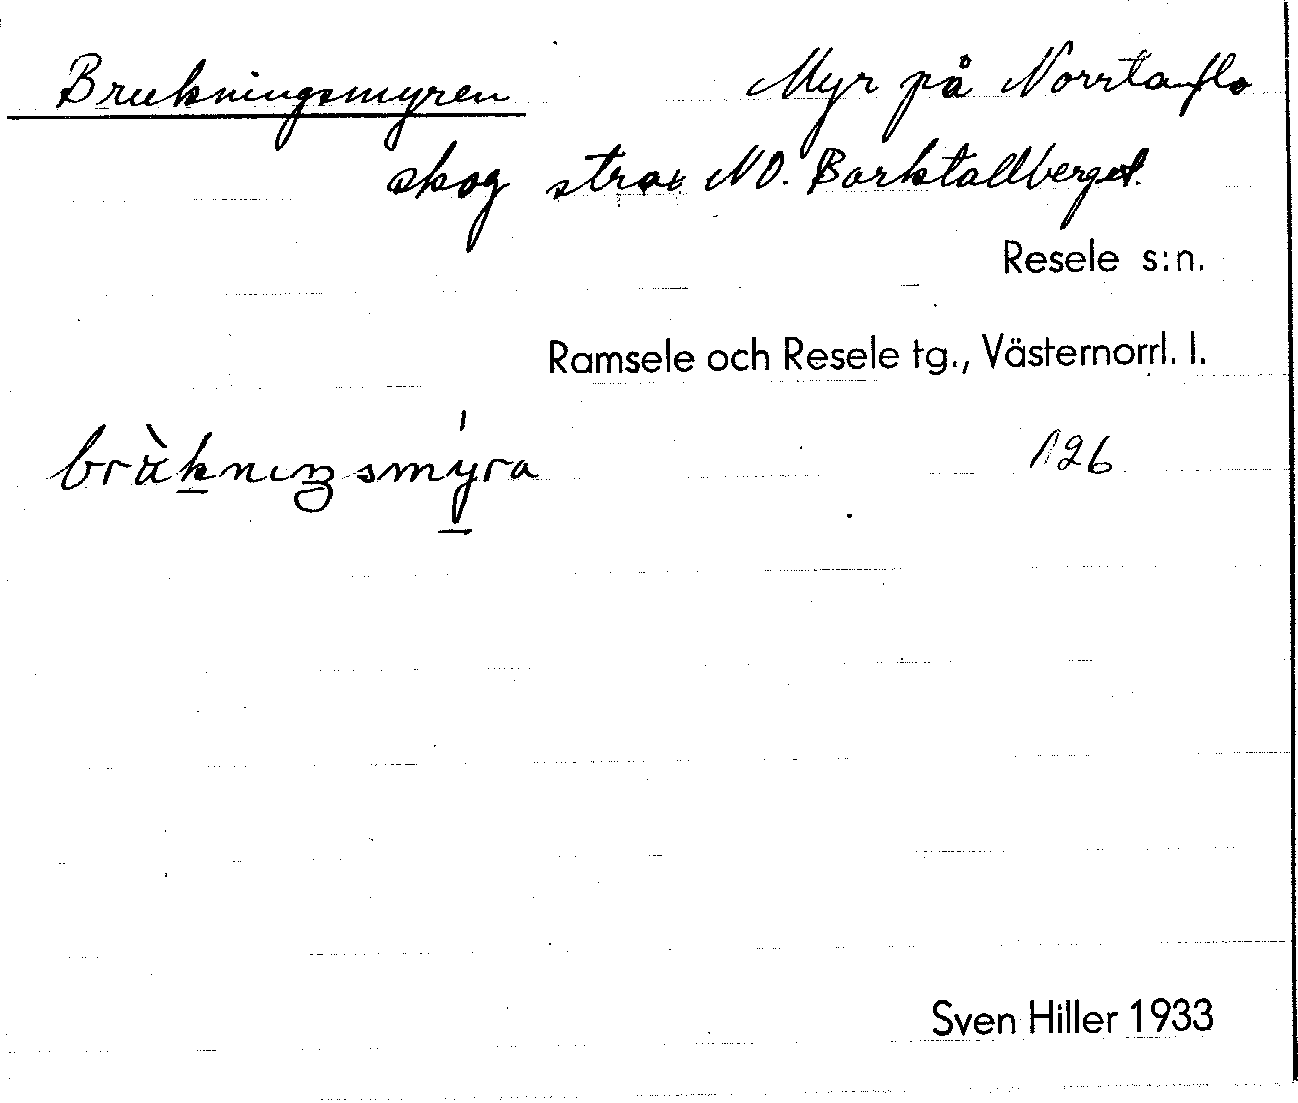 Brukningsmyren Myr på Norrtanflo
skog strax NO. Barktallberget.
Resele s:n.
Ramsele och Resele tg., Västernorrl. l.
126
Sven Hiller 1933